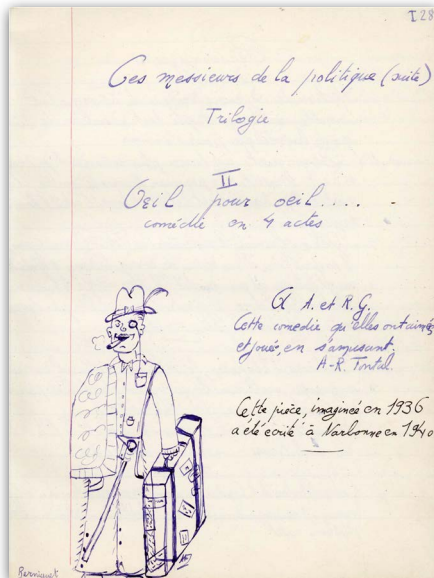 I 28
Ces messieurs de la politique (suite)
Trilogie
II
Oeil pour oeil....
comédie en 4 actes
A A. et R.G.
Cette comédie qu'elles ont aimée
et jouée, en s'amusant.
A-R. Tontal.
Cette pièce, imaginée en 1936
a été écrite à Narbonne en 1940